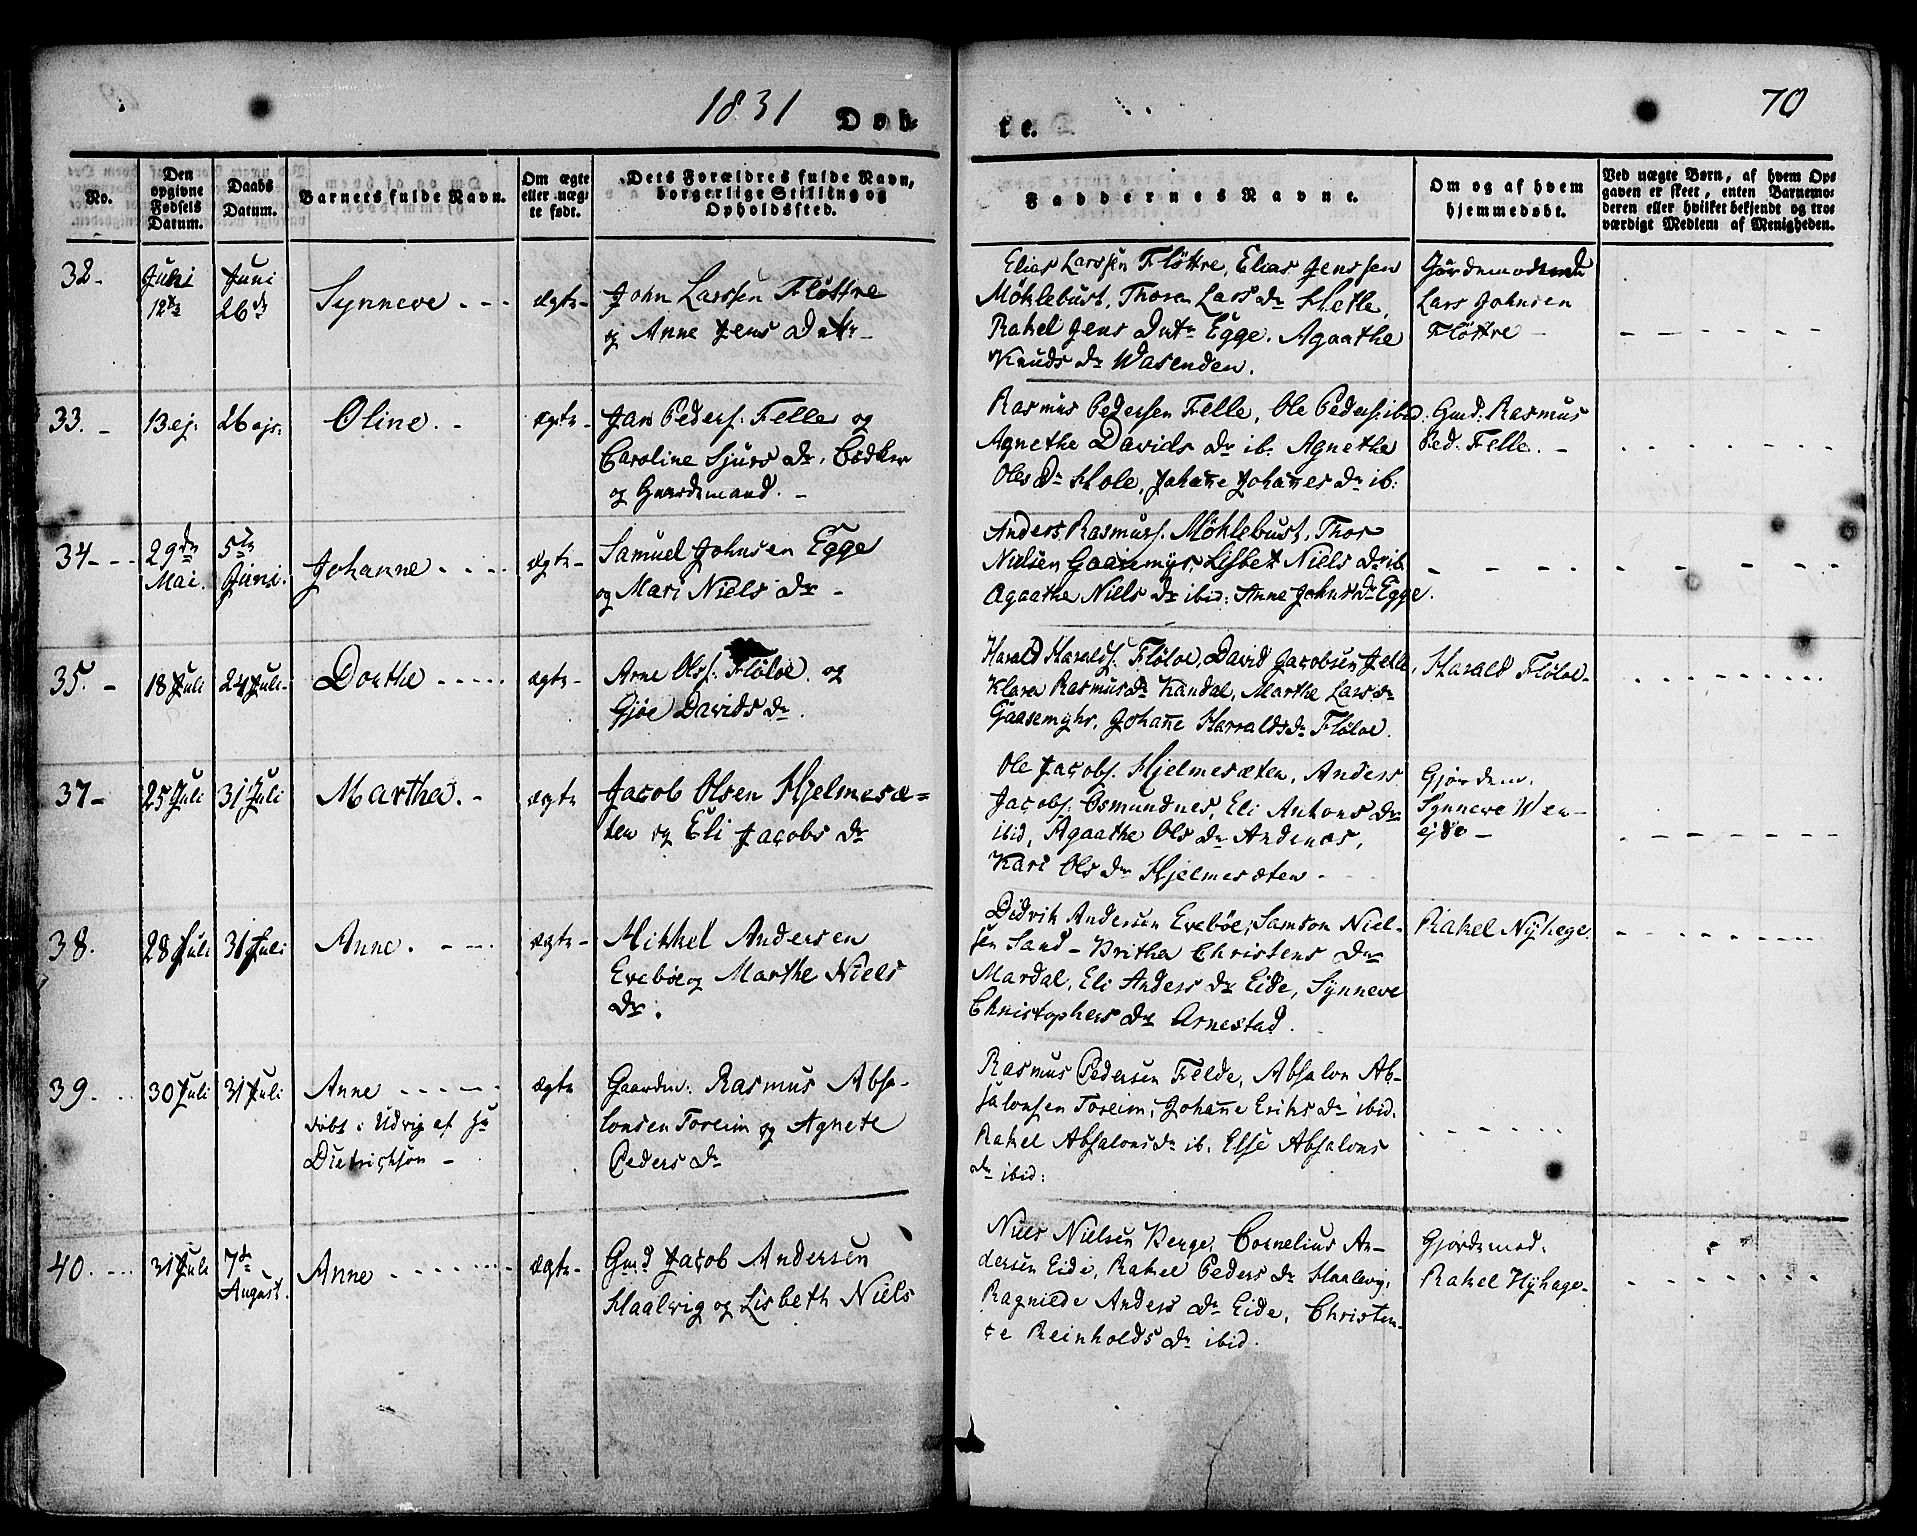 1831
Døb-
te.
70
No.
Den opgivne Fødsels Datum.
Daabs Datum.
Barnets fulde Navn.
Om ægte eller uægte født.
Dets Forældres fulde Navn, borgerlige Stilling og Opholdssted.
Faddernes Navne.
Om og af hvem hjemmedøbt.
Ved uægte Børn, af hvem Opgaven er skeet, enten Barnemoderen eller hvilket bekjendt og troværdigt Medlem af Menigheden.
32-
Juni
12te
Juni
26de
Synneve - - -
ægte-
John Larssen Fløttre
og Anne Jens Datr-
Elias Larssen Fløttre, Elias Jenssen
Møhlebust, Thoren Lars Dr Hetle,
Rakel Jens Datr Egge. Agaathe
Knuds Dr Wasenden.
Lars Johnsen
Fløttre -
33. -
13 ej.
26 ejs.
Oline. -
ægte-
Jan Peders. Felle og
Caroline Sjurs Dr. Bødker
og Gaardmand. -
Rasmus Pedersen Felle, Ole Peders. ibid.
Agnethe Davids Dr ib. Agnethe
Ols Dr Hole, Johañe Johañes Dr ib:
Gmd. Rasmus
Ped. Felle. -
34- - -
29de
Mai.
5te
Juni.
Johanne - - - -
ægte-
Samuel Johnsen Egge
og Mari Niels Dr -
Anders Rasmuss. Møhlebust, Thor
Nielsen Gaasmyr, Lisbet Niels Dr ib.
Agaathe Niels Dr ibid: Anne Johns Dr Egge.
35. -
18 Juli
24 Juli-
Dorthe - - - - -
ægte-
Arne Olss. Fløloe og
Gjøe Davids Dr.
Harald Haralds. Fløloe, David Jacobsen Felle,
Klara Rasmus Dr Kandal, Marthe Lars Dr
Gaasemyhr, Johañe Harralds Dr Fløloe.
Harald Fløloe-
37-
25 Juli
31 Juli
Martha. -
ægte
Jacob Olsen Hjelmesæ-
ten og Eli Jacobs Dr
Ole Jacobs. Hjelmesæten, Anders
Jacobs. Osmundnes, Eli Antons Dr
ibid, Agaathe Ols Dr Andenæs,
Kari Ols Dr Hjelmesæten -
Gjørdem.
Synneve Wen-
38.
28 Juli
31 Juli
Anne. - - -
ægte-
Mikkel Andersen
Evebøe og Marthe Niels
Dr.
Didrik Andersen Evebøe, Samson Niel-
sen Sand - Britha Christens Dr
Mardal, Eli Anders Dr Eide, Synneve
Christophers Dr Arnestad.
Rakel Nyhage.
39. - -
30 Juli
31 Juli
Anne - - - - -
døbt i Udvig af Hr
Diedrichson -
ægte
Gaardm. Rasmus Absa-
lonsen Toreim og Agnete
Peders Dr
Rasmus Pedersen Felde, Absalon Ab-
salonsen Toreim, Johañe Eriks Dr ibid.
Rakel Absalons Dr ib. Else Absalons
Dr ibid:
40. - - -
31 Juli
7de
August.
Anne - - - - - -
ægte-
Gmd Jacob Andersen
Haalvig og Lisbeth Niels
Niels Nielsen Berge, Cornelius An-
dersen Eide, Rakel Peders Dr Haalevig,
Ragnilde Anders Dr Eide, Christen-
ze Reinholds Dr ibid.
Gjørdemod.
Rakel Nyhage-